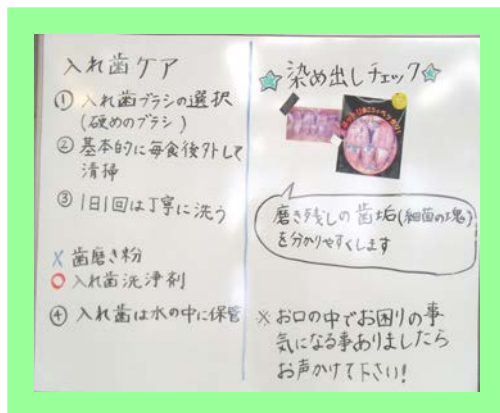 入れ歯ケア
① 入れ歯ブラシの選択
(硬めのブラシ)
② 基本的に毎食後外して
清掃
③ 1日1回は丁寧に洗う
X 歯磨き粉
○ 入れ歯洗浄剤
④ 入れ歯は水の中に保管
☆染め出しチェック☆
磨き残しの歯垢(細菌の塊)
を分かりやすくします
※お口の中でお困りの事
気になる事ありましたら
お声かけて下さい!